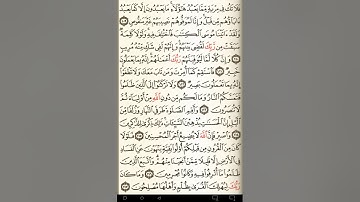 فَلَا تَكُ فِي مِرْيَةٍ مِّمَّا يَعْبُدُ هَٰٓؤُلَآءِ مَا يَعْبُدُونَ إِلَّا كَمَا يَعْبُدُ
ءَابَآؤُهُم مِّن قَبْلُ وَإِنَّا لَمُوَفُّوهُمْ نَصِيبَهُمْ غَيْرَ مَنقُوصٍ ١٠٩
وَلَقَدْ ءَاتَيْنَا مُوسَى ٱلْكِتَٰبَ فَٱخْتُلِفَ فِيهِ وَلَوْلَا كَلِمَةٌ
سَبَقَتْ مِن رَّبِّكَ لَقُضِيَ بَيْنَهُمْ وَإِنَّهُمْ لَفِي شَكٍّ مِّنْهُ مُرِيبٍ
١١٠ وَإِنَّ كُلًّا لَّمَّا لَيُوَفِّيَنَّهُمْ رَبُّكَ أَعْمَٰلَهُمْ إِنَّهُۥ بِمَا يَعْمَلُونَ
خَبِيرٌ ١١١ فَٱسْتَقِمْ كَمَآ أُمِرْتَ وَمَن تَابَ مَعَكَ وَلَا تَطْغَوْا۟
إِنَّهُۥ بِمَا تَعْمَلُونَ بَصِيرٌ ١١٢ وَلَا تَرْكَنُوٓا۟ إِلَى ٱلَّذِينَ ظَلَمُوا۟
فَتَمَسَّكُمُ ٱلنَّارُ وَمَا لَكُم مِّن دُونِ ٱللَّهِ مِنْ أَوْلِيَآءَ ثُمَّ
لَا تُنصَرُونَ ١١٣ وَأَقِمِ ٱلصَّلَوٰةَ طَرَفَيِ ٱلنَّهَارِ وَزُلَفًا مِّنَ
ٱلَّيْلِ إِنَّ ٱلْحَسَنَٰتِ يُذْهِبْنَ ٱلسَّيِّـَٔاتِ ذَٰلِكَ ذِكْرَىٰ لِلذَّٰكِرِينَ
١١٤ وَٱصْبِرْ فَإِنَّ ٱللَّهَ لَا يُضِيعُ أَجْرَ ٱلْمُحْسِنِينَ ١١٥ فَلَوْلَا
كَانَ مِنَ ٱلْقُرُونِ مِن قَبْلِكُمْ أُو۟لُوا۟ بَقِيَّةٍ يَنْهَوْنَ عَنِ ٱلْفَسَادِ
فِي ٱلْأَرْضِ إِلَّا قَلِيلًا مِّمَّنْ أَنجَيْنَا مِنْهُمْ وَٱتَّبَعَ ٱلَّذِينَ
ظَلَمُوا۟ مَآ أُتْرِفُوا۟ فِيهِ وَكَانُوا۟ مُجْرِمِينَ ١١٦ وَمَا كَانَ
رَبُّكَ لِيُهْلِكَ ٱلْقُرَىٰ بِظُلْمٍ وَأَهْلُهَا مُصْلِحُونَ ١١٧